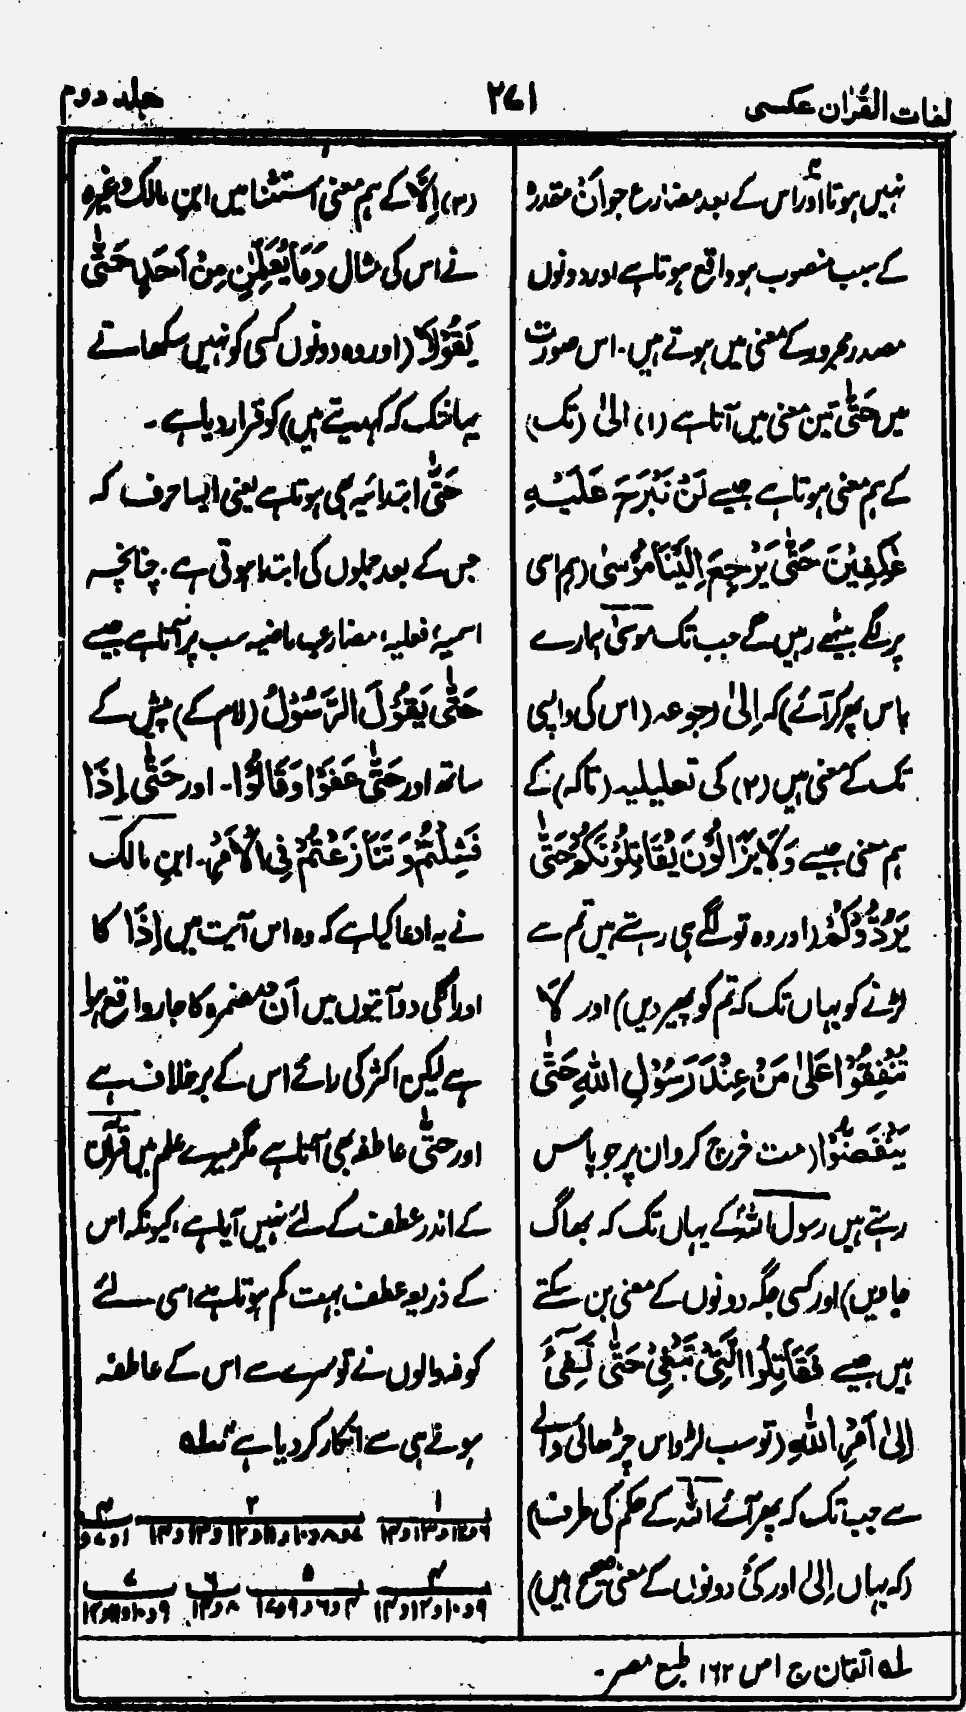 لغات القرآن عکسی
۲۷۱
جلد دوم
نہیں ہوتا اور اس کے بعد مضارع جو اَنْ مقدرہ
کے سبب منصوب ہو واقع ہوتا ہے اور دونوں
مصدر مجرور کے معنی میں ہوتے ہیں۔ اس صورت
میں حَتّٰی تین معنی میں آتا ہے (۱) الیٰ (تک)
کے ہم معنی ہوتا ہے جیسے لَنْ نَّبْرَحَ عَلَیْہِ
عٰکِفِیْنَ حَتّٰی یَرْجِعَ اِلَیْنَا مُوْسٰی (ہم اسی
پر لگے بیٹھے رہیں گے جب تک موسٰی ہمارے
پاس پھر کر آئے) کہ اِلیٰ رجوعہ (اس کی واپسی
تک کے معنی ہیں (۲) کی تعلیلیہ (تاکہ) کے
ہم معنی جیسے وَلَا یَزَالُوْنَ یُقَاتِلُوْنَکُمْ حَتّٰی
یَرُدُّوْکُمْ (اور وہ تو لگے ہی رہتے ہیں تم سے
لڑنے کو یہاں تک کہ تم کو پھیر دیں) اور لَا
تُنْفِقُوْا عَلٰی مَنْ عِنْدَ رَسُوْلِ اللّٰہِ حَتّٰی
یَنْفَضُّوْا (مت خرچ کرو ان پر جو پاس
رہتے ہیں رسول اللہ کے یہاں تک کہ بھاگ
جاویں) اور کسی جگہ دونوں کے معنی بن سکتے
ہیں جیسے فَقَاتِلُوا الَّتِیْ تَبْغِیْ حَتّٰی تَفِیْٓءَ
اِلیٰٓ اَمْرِ اللّٰہِ (تو سب لڑو اس چڑھائی والے
سے جب تک کہ پھر آئے اللہ کے حکم کی طرف)
(کہ یہاں اِلیٰ اور کَیْ دونوں کے معنی صحیح ہیں)
(۳) اِلَّا کے ہم معنی استثنا میں ابن مالک وغیرہ
نے اس کی مثال وَمَا یُعَلِّمٰنِ مِنْ اَحَدٍ حَتّٰی
یَقُوْلَا (اور وہ دونوں کسی کو نہیں سکھاتے
یہانتک کہ کہدیتے ہیں) کو قرار دیا ہے۔
حَتّٰی ابتدائیہ بھی ہوتا ہے یعنی ایسا حرف کہ
جس کے بعد جملوں کی ابتدا ہوتی ہے۔ چنانچہ
اسمیہ، فعلیہ، مضارعیہ ماضیہ سب پر آتا ہے جیسے
حَتّٰی یَقُوْلُ الرَّسُوْلُ (لام کے) پیش کے
ساتھ اور حَتّٰی عَفَوْا وَقَالُوْا۔ اور حَتّٰی اِذَا
فَشِلْتُمْ وَتَنَازَعْتُمْ فِی الْاَمْرِ۔ ابن مالک
نے یہ ادعا کیا ہے کہ وہ اس آیت میں اِذَا کا
اور اگلی دو آیتوں میں اَنْ مضمرہ کا جار واقع ہوا
ہے لیکن اکثر کی رائے اس کے برخلاف ہے
اور حتّٰی عاطفہ بھی آتا ہے مگر میرے علم میں قرآن
کے اندر عطف کے لئے نہیں آیا ہے، کیونکہ اس
کے ذریعہ عطف بہت کم ہوتا ہے اسی لئے
کوفہ والوں نے تو سرے سے اس کے عاطفہ
ہونے ہی سے انکار کر دیا ہے؂ لہ
لہ اتقان ج ا ص ۱۶۲ طبع مصر۔